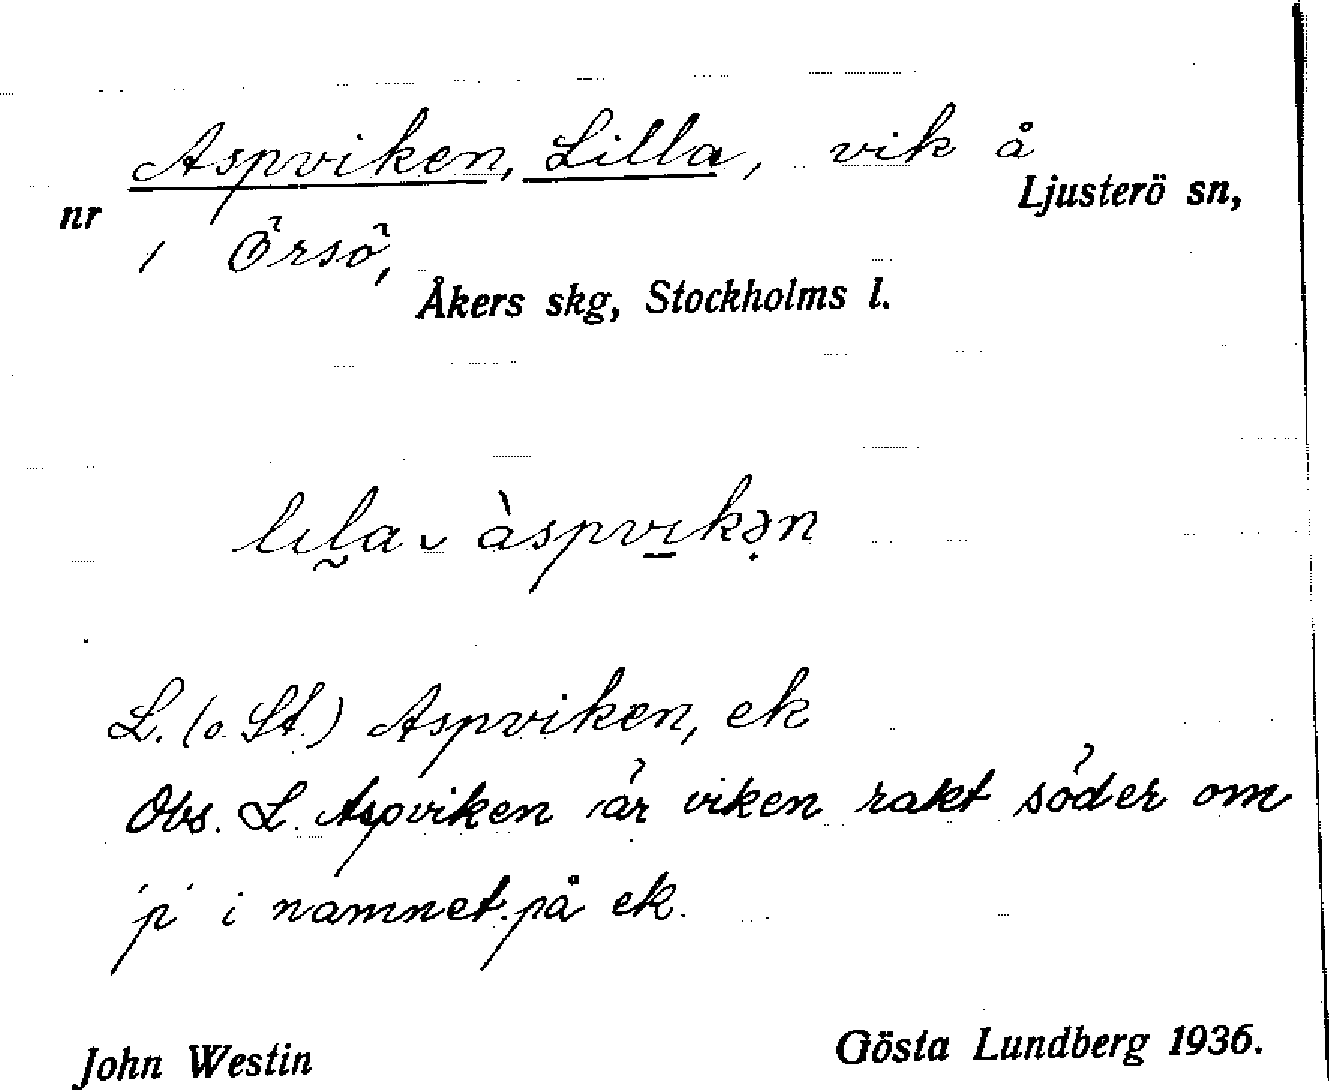 Aspviken, Lilla, vik å
nr Ljusterö sn,
1 Örsö,
Åkers skg, Stockholms l.
lıl̰a ᴗ àspvı̱kə̣n
L. (o. St.) Aspviken, ek
Obs. L. Aspviken är viken rakt söder om
'p' i namnet på ek.
John Westin Gösta Lundberg 1936.